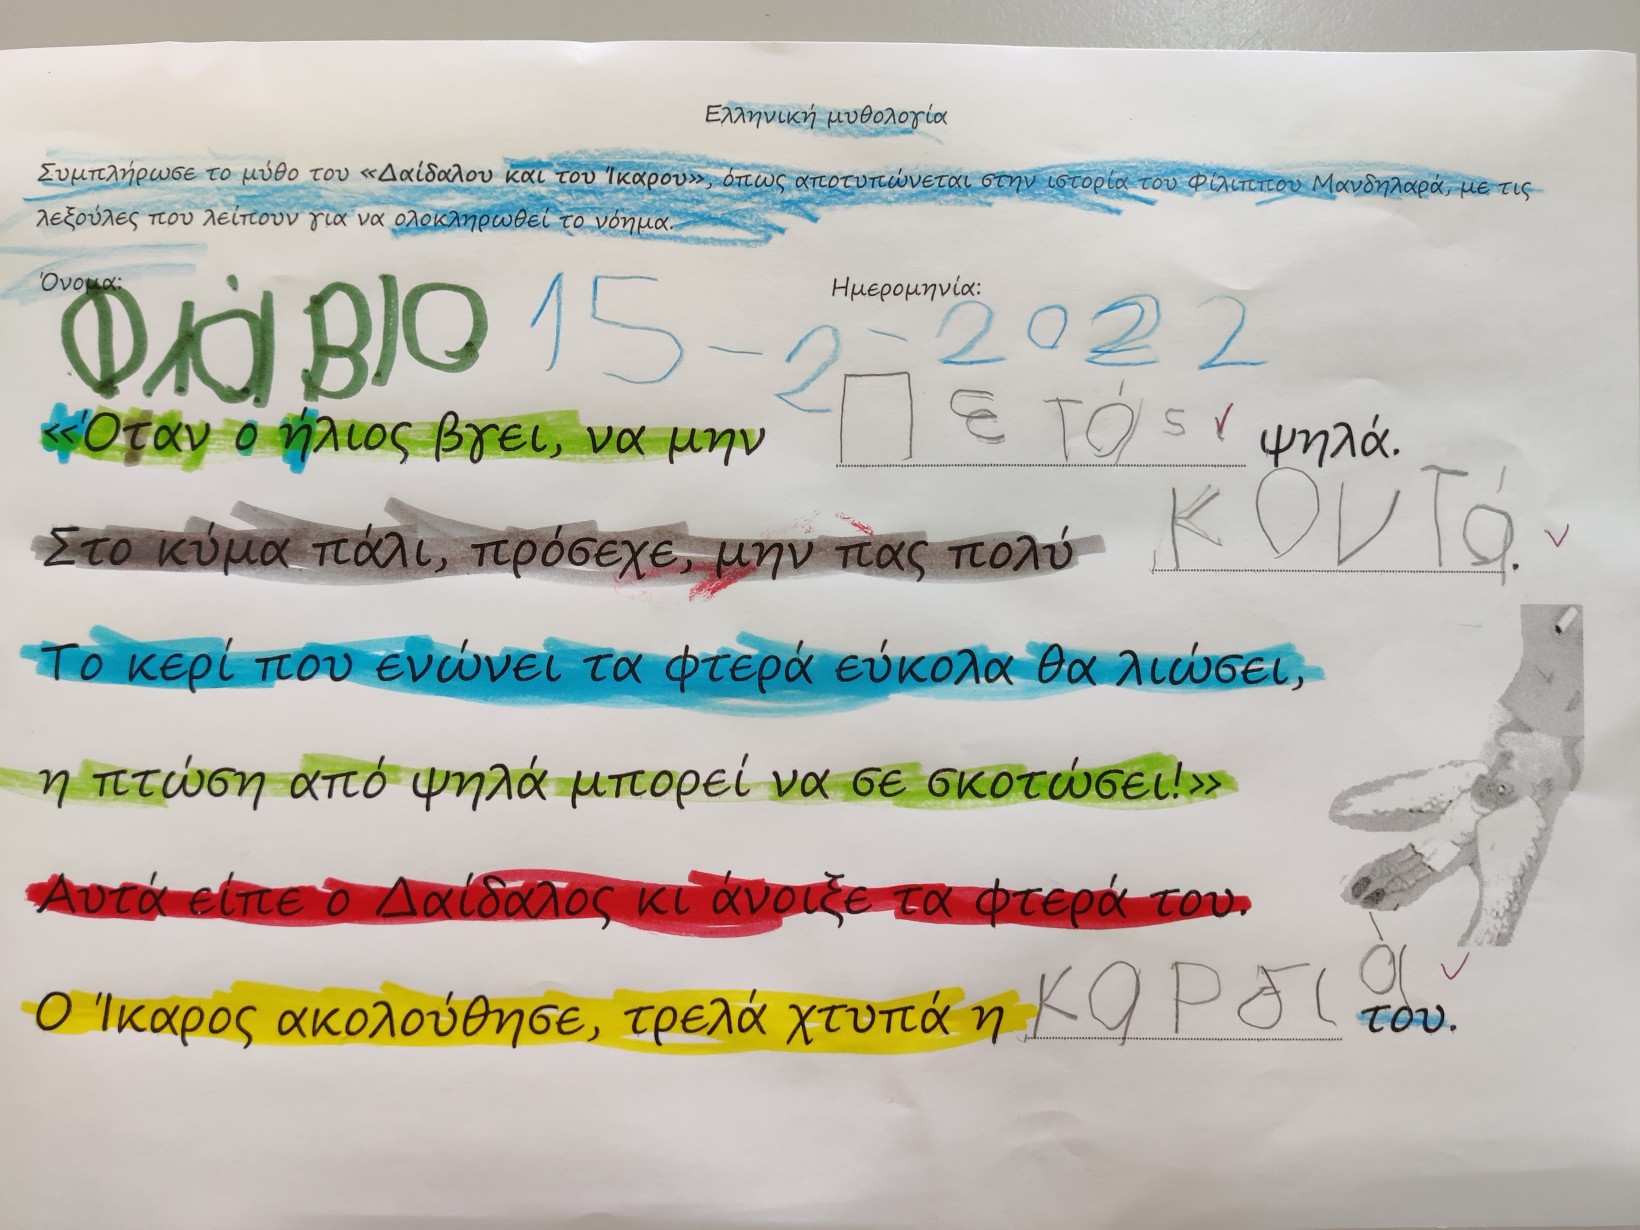 Ελληνική μυθολογία
Συμπλήρωσε το μύθο του «Δαίδαλου και του Ίκαρου», όπως αποτυπώνεται στην ιστορία του Φίλιππου Μανδηλαρά, με τις
λεξούλες που λείπουν για να ολοκληρωθεί το νόημα.
Όνομα: ΦλάΒΙΟ Ημερομηνία: 15-2-2022
«Όταν ο ήλιος βγει, να μην Πετάς ψηλά.
Στο κύμα πάλι, πρόσεχε, μην πας πολύ κοντά.
Το κερί που ενώνει τα φτερά εύκολα θα λιώσει,
η πτώση από ψηλά μπορεί να σε σκοτώσει!»
Αυτά είπε ο Δαίδαλος κι άνοιξε τα φτερά του.
Ο Ίκαρος ακολούθησε, τρελά χτυπά η καρδιά του.